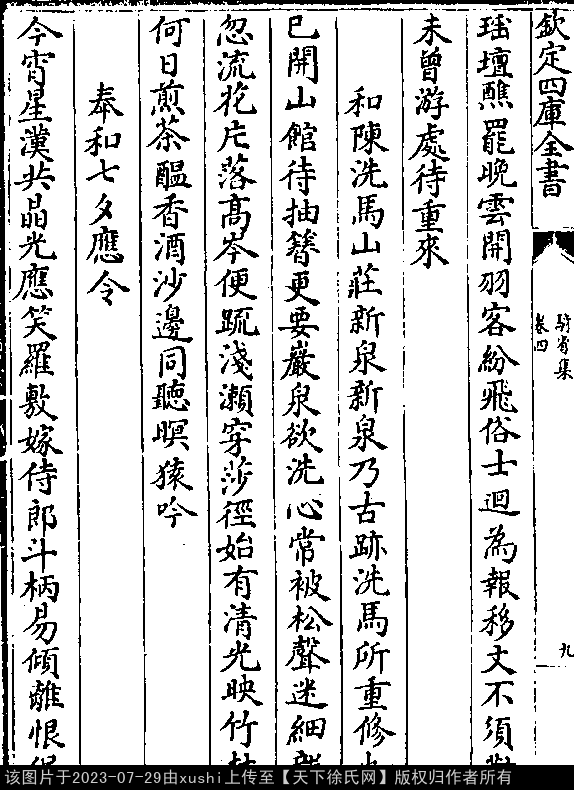 欽定四庫全書
騎省集
卷四
九
瑤壇醮罷晚雲開羽客紛飛俗士迴為報移文不須
未曾游處待重來
和陳洗馬山莊新泉新泉乃古跡洗馬所重修
已開山館待抽簪更要巖泉欲洗心常被松聲迷細
忽流花片落髙岑便疏淺瀬穿莎徑始有清光映竹
何日煎茶醖香酒沙邊同聽暝猿吟
奉和七夕應令
今宵星漢共晶光應笑羅敷嫁侍郎斗柄易傾離恨
该图片于2023-07-29由xushi上传至【天下徐氏网】版权归作者所有